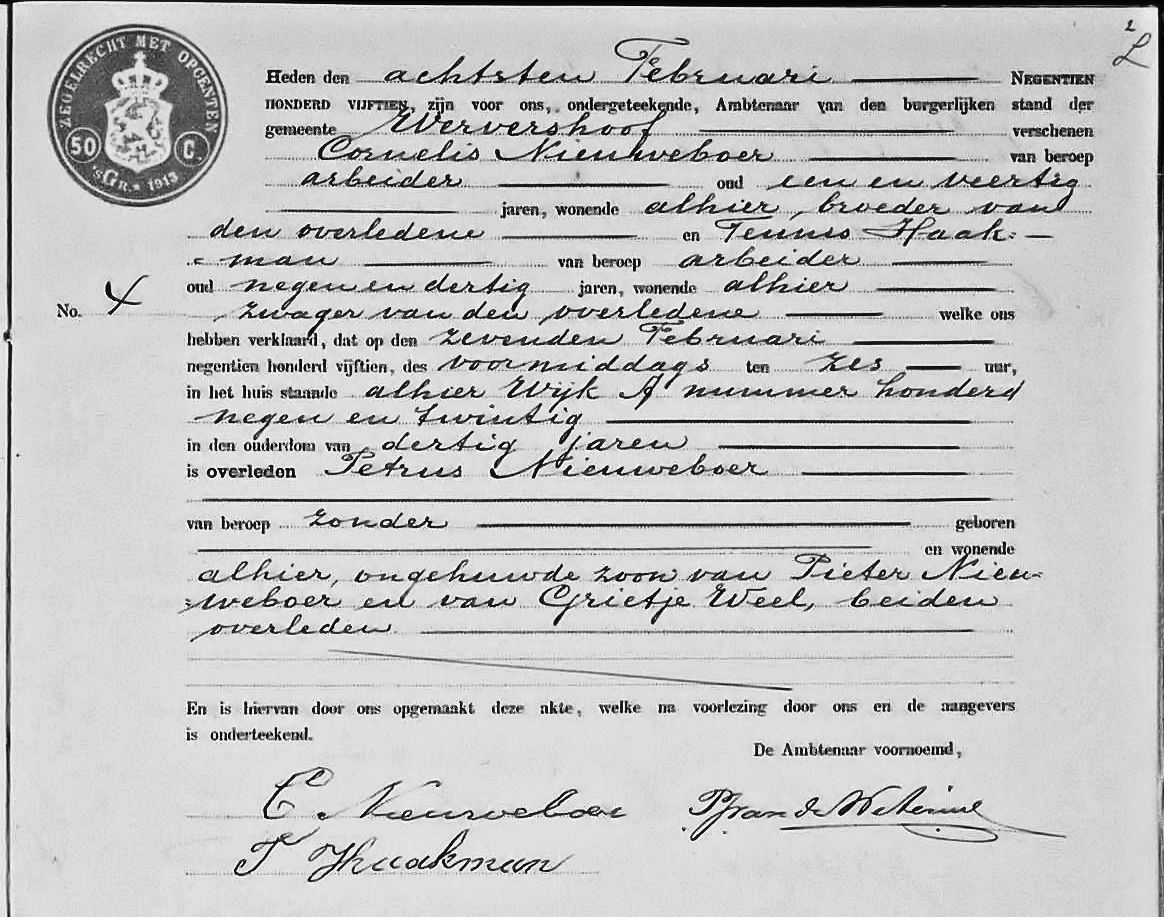 2
L
ZEGELRECHT MET OPCENTEN
50 C.
'SGR. 1913
Heden den achtsten Februari NEGENTIEN
HONDERD VIJFTIEN, zijn voor ons, ondergeteekende, Ambtenaar van den burgerlijken stand der
gemeente Wervershoof verschenen
Cornelis Nieuweboer van beroep
arbeider oud een en veertig
jaren, wonende alhier, broeder van
den overledene en Teunis Haak-
man van beroep arbeider
oud negen en dertig jaren, wonende alhier
No. 4 zwager van den overledene welke ons
hebben verklaard, dat op den zevenden Februari
negentien honderd vijftien, des voormiddags ten zes uur,
in het huis staande alhier Wijk A nummer honderd
negen en twintig
in den ouderdom van dertig jaren
is overleden Petrus Nieuweboer
van beroep zonder geboren
en wonende
alhier, ongehuwde zoon van Pieter Nieu-
weboer en van Grietje Weel, beiden
overleden.
En is hiervan door ons opgemaakt deze akte, welke na voorlezing door ons en de aangevers
is onderteekend.
De Ambtenaar voornoemd,
C Nieuweboer
T Haakman